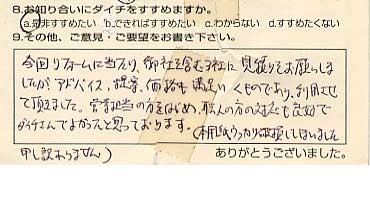 8.お知り合いにダイチをすすめますか。
a.是非すすめたい b.できればすすめたい c.わからない d.すすめたくない
9.その他、ご意見・ご要望をお書き下さい。
今回リフォームに当たり、御社を含む3社に見積りをお願いしま
したが、アドバイス、提案、価格も満足いくものであり、利用させ
て頂きました。営業担当の方をはじめ、職人の方の対応も良好で
ダイチさんでよかったと思っております。(本用紙うっかり破損してしまいました
申し訳ありません)
ありがとうございました。